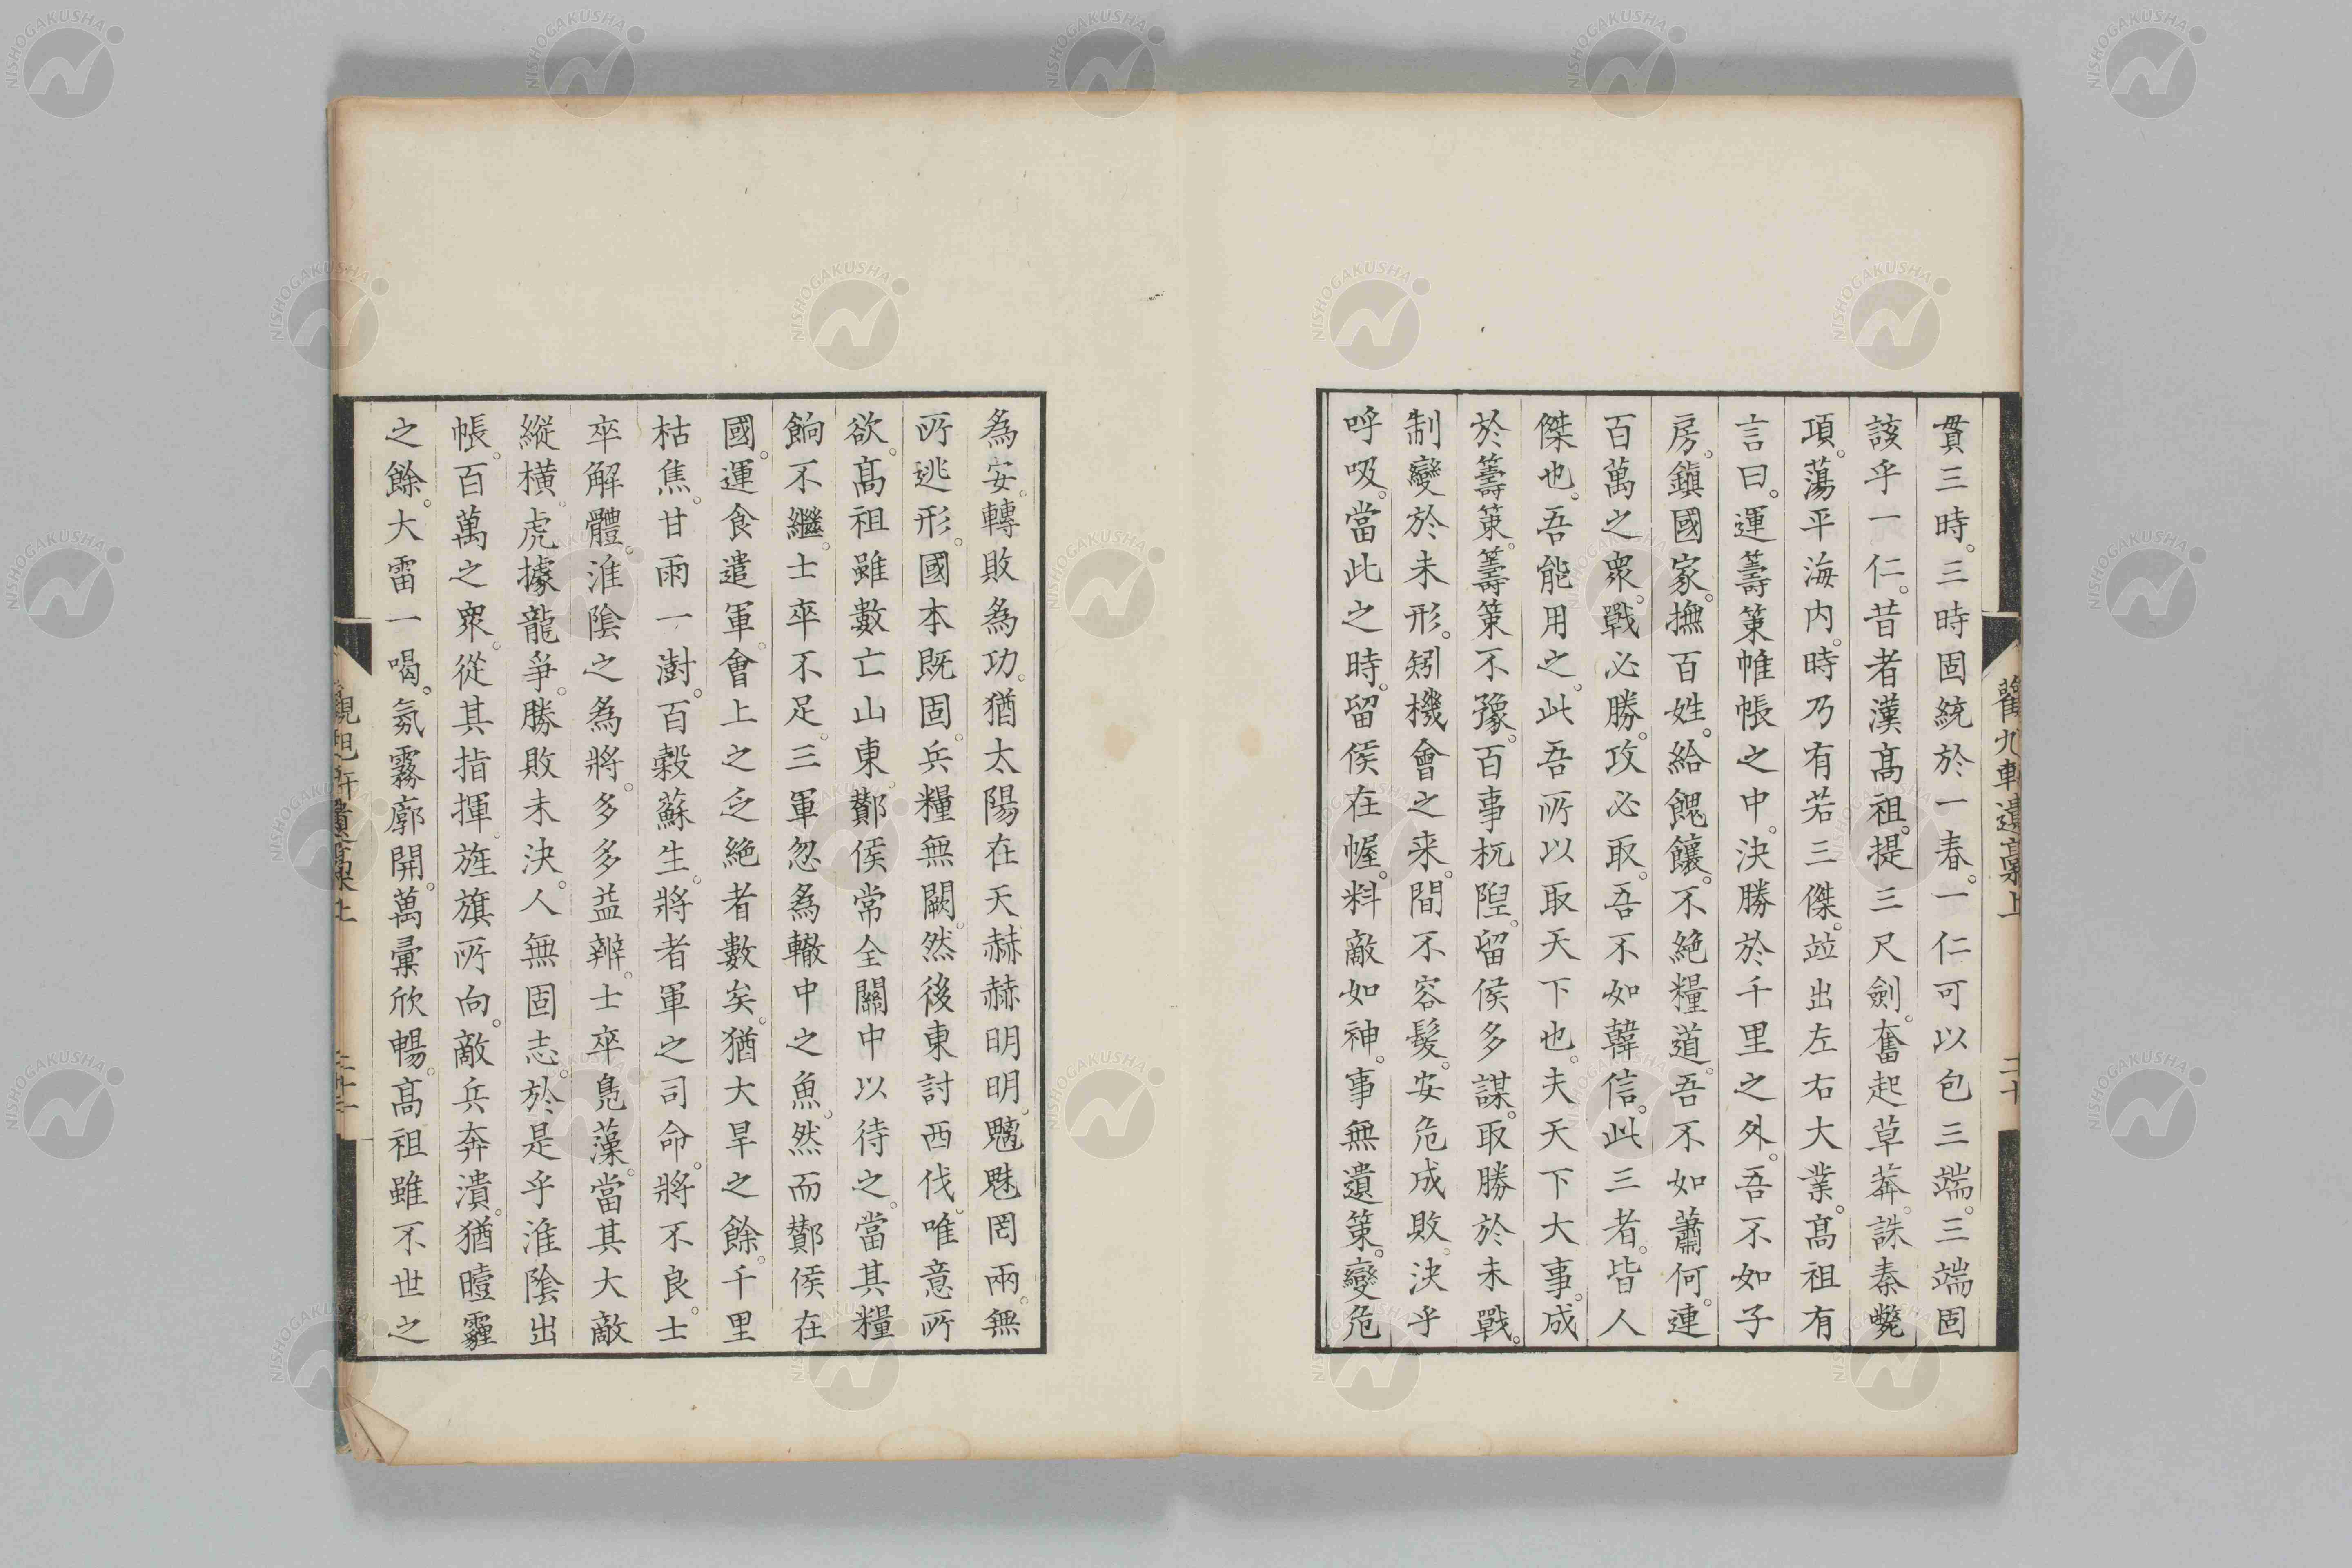 貫三時。三時固統於一春。一仁可以包三端。三端固
該乎一仁。昔者漢高祖。提三尺劍。奮起草莽。誅秦斃
項。蕩平海内。時乃有若三傑。竝出左右大業。高祖有
言曰。運籌策帷帳之中。決勝於千里之外。吾不如子
房。鎮國家。撫百姓。給餽饟。不絶糧道。吾不如蕭何。連
百萬之衆。戰必勝。攻必取。吾不如韓信。此三者。皆人
傑也。吾能用之。此吾所以取天下也。夫天下大事。成
於籌策。籌策不豫。百事杌隉。留侯多謀。取勝於未戰。
制變於未形。矧機會之来。間不容髮。安危成敗。決乎
呼吸。當此之時。留侯在幄。料敵如神。事無遺策。變危
為安。轉敗為功。猶太陽在天赫赫明明。魑魅罔兩。無
所逃形。國本既固。兵糧無闕。然後東討西伐。唯意所
欲。高祖雖數亡山東。酇侯常全關中以待之。當其糧
餉不繼。士卒不足。三軍忽為轍中之魚。然而酇侯在
國。運食遣軍。會上之乏絶者數矣。猶大旱之餘。千里
枯焦。甘雨一澍。百穀蘇生。將者軍之司命。將不良。士
卒解體。淮陰之為將。多多益辨。士卒鳧藻。當其大敵
縱横。虎據龍爭。勝敗未決。人無固志。於是乎淮陰出
帳。百萬之衆。從其指揮。旌旗所向。敵兵奔潰。猶曀霾
之餘。大雷一喝。氛霧廓開。萬彙欣暢。高祖雖不世之
觀九軒遺稾上
二十
NISHOGAKUSHA